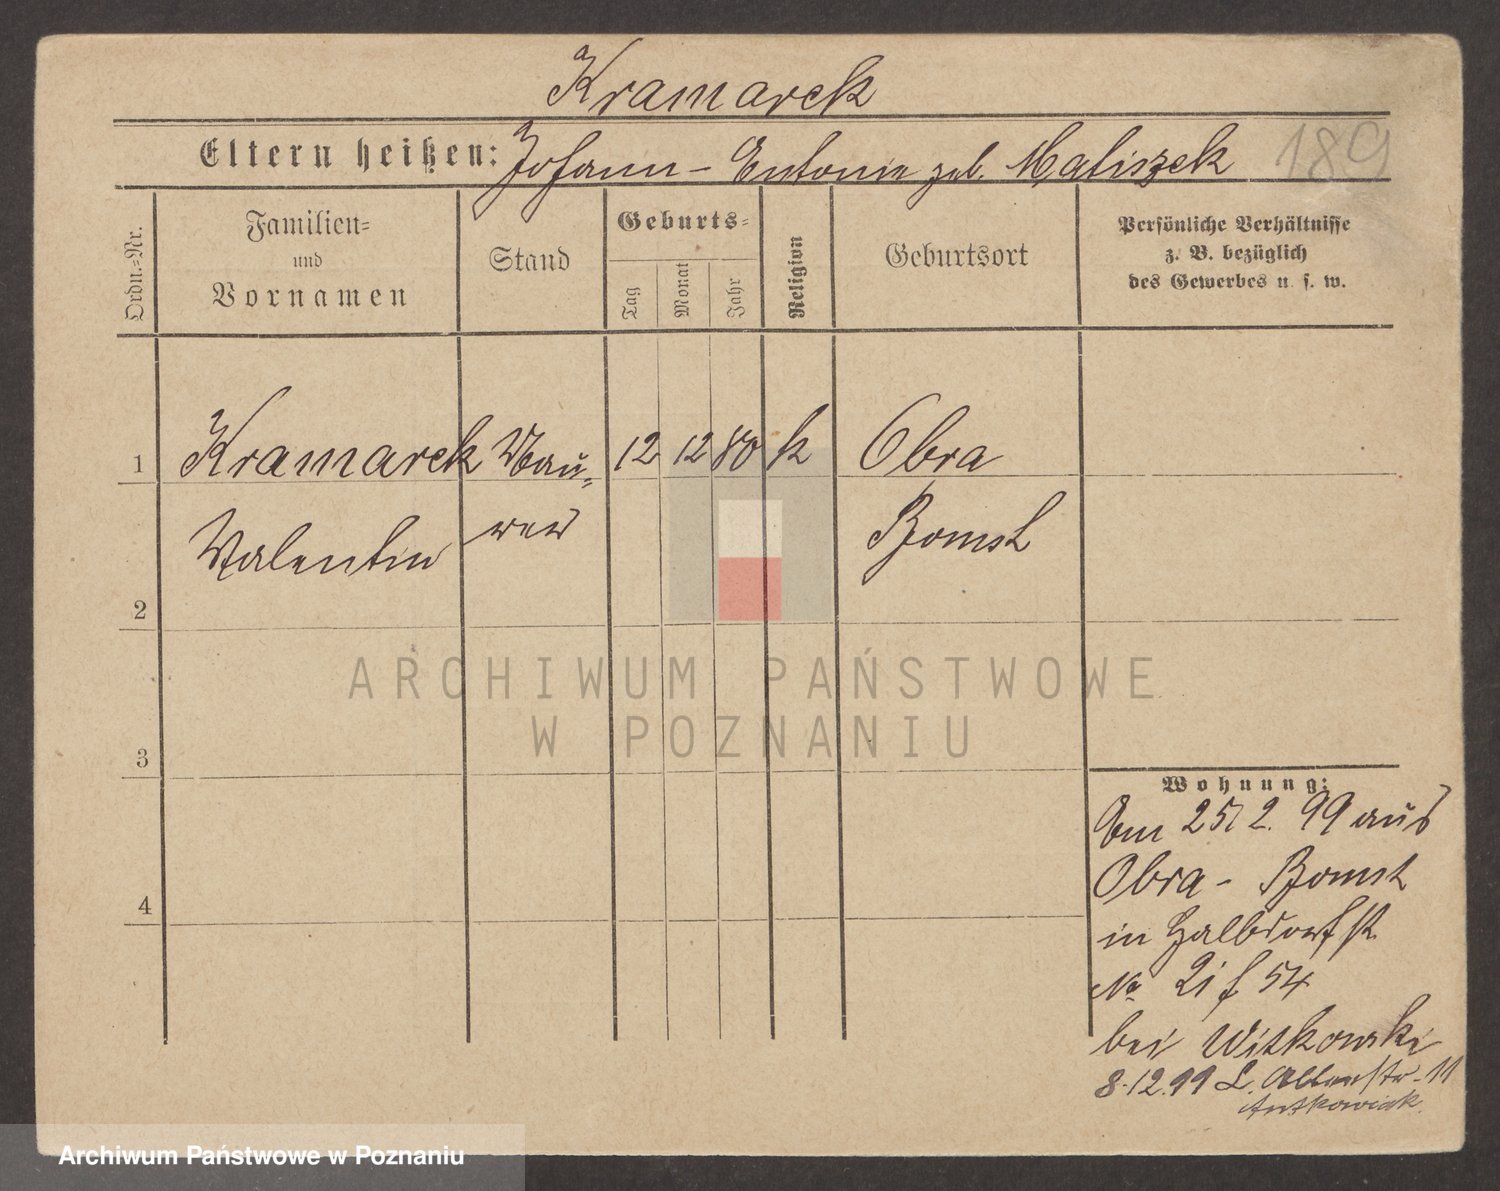 Kramarek
Eltern heißen: Johann - Antonie geb. Matiszek
189
Ordn.-Nr.
Familien-
und
Vornamen
Stand
Geburts-
Tag
Monat
Jahr
Religion
Geburtsort
Persönliche Verhältnisse
z. B. bezüglich
des Gewerbes u. s. w.
1 Kramarek Mau- 12 12 80 k Obra
Valentin rer Bomst
2
3
4
Wohnung:
Am 25/2. 99 aus
Obra - Bomst
in Halbdorfst
No 21 f 54
bei Witkowski
8.12.99 L. 11
Antkowiak.
ARCHIWUM PAŃSTWOWE
W POZNANIU
Archiwum Państwowe w Poznaniu